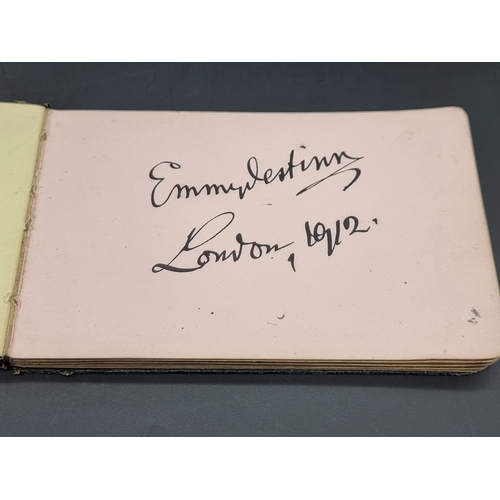 Emmydestinn
London, 1912.